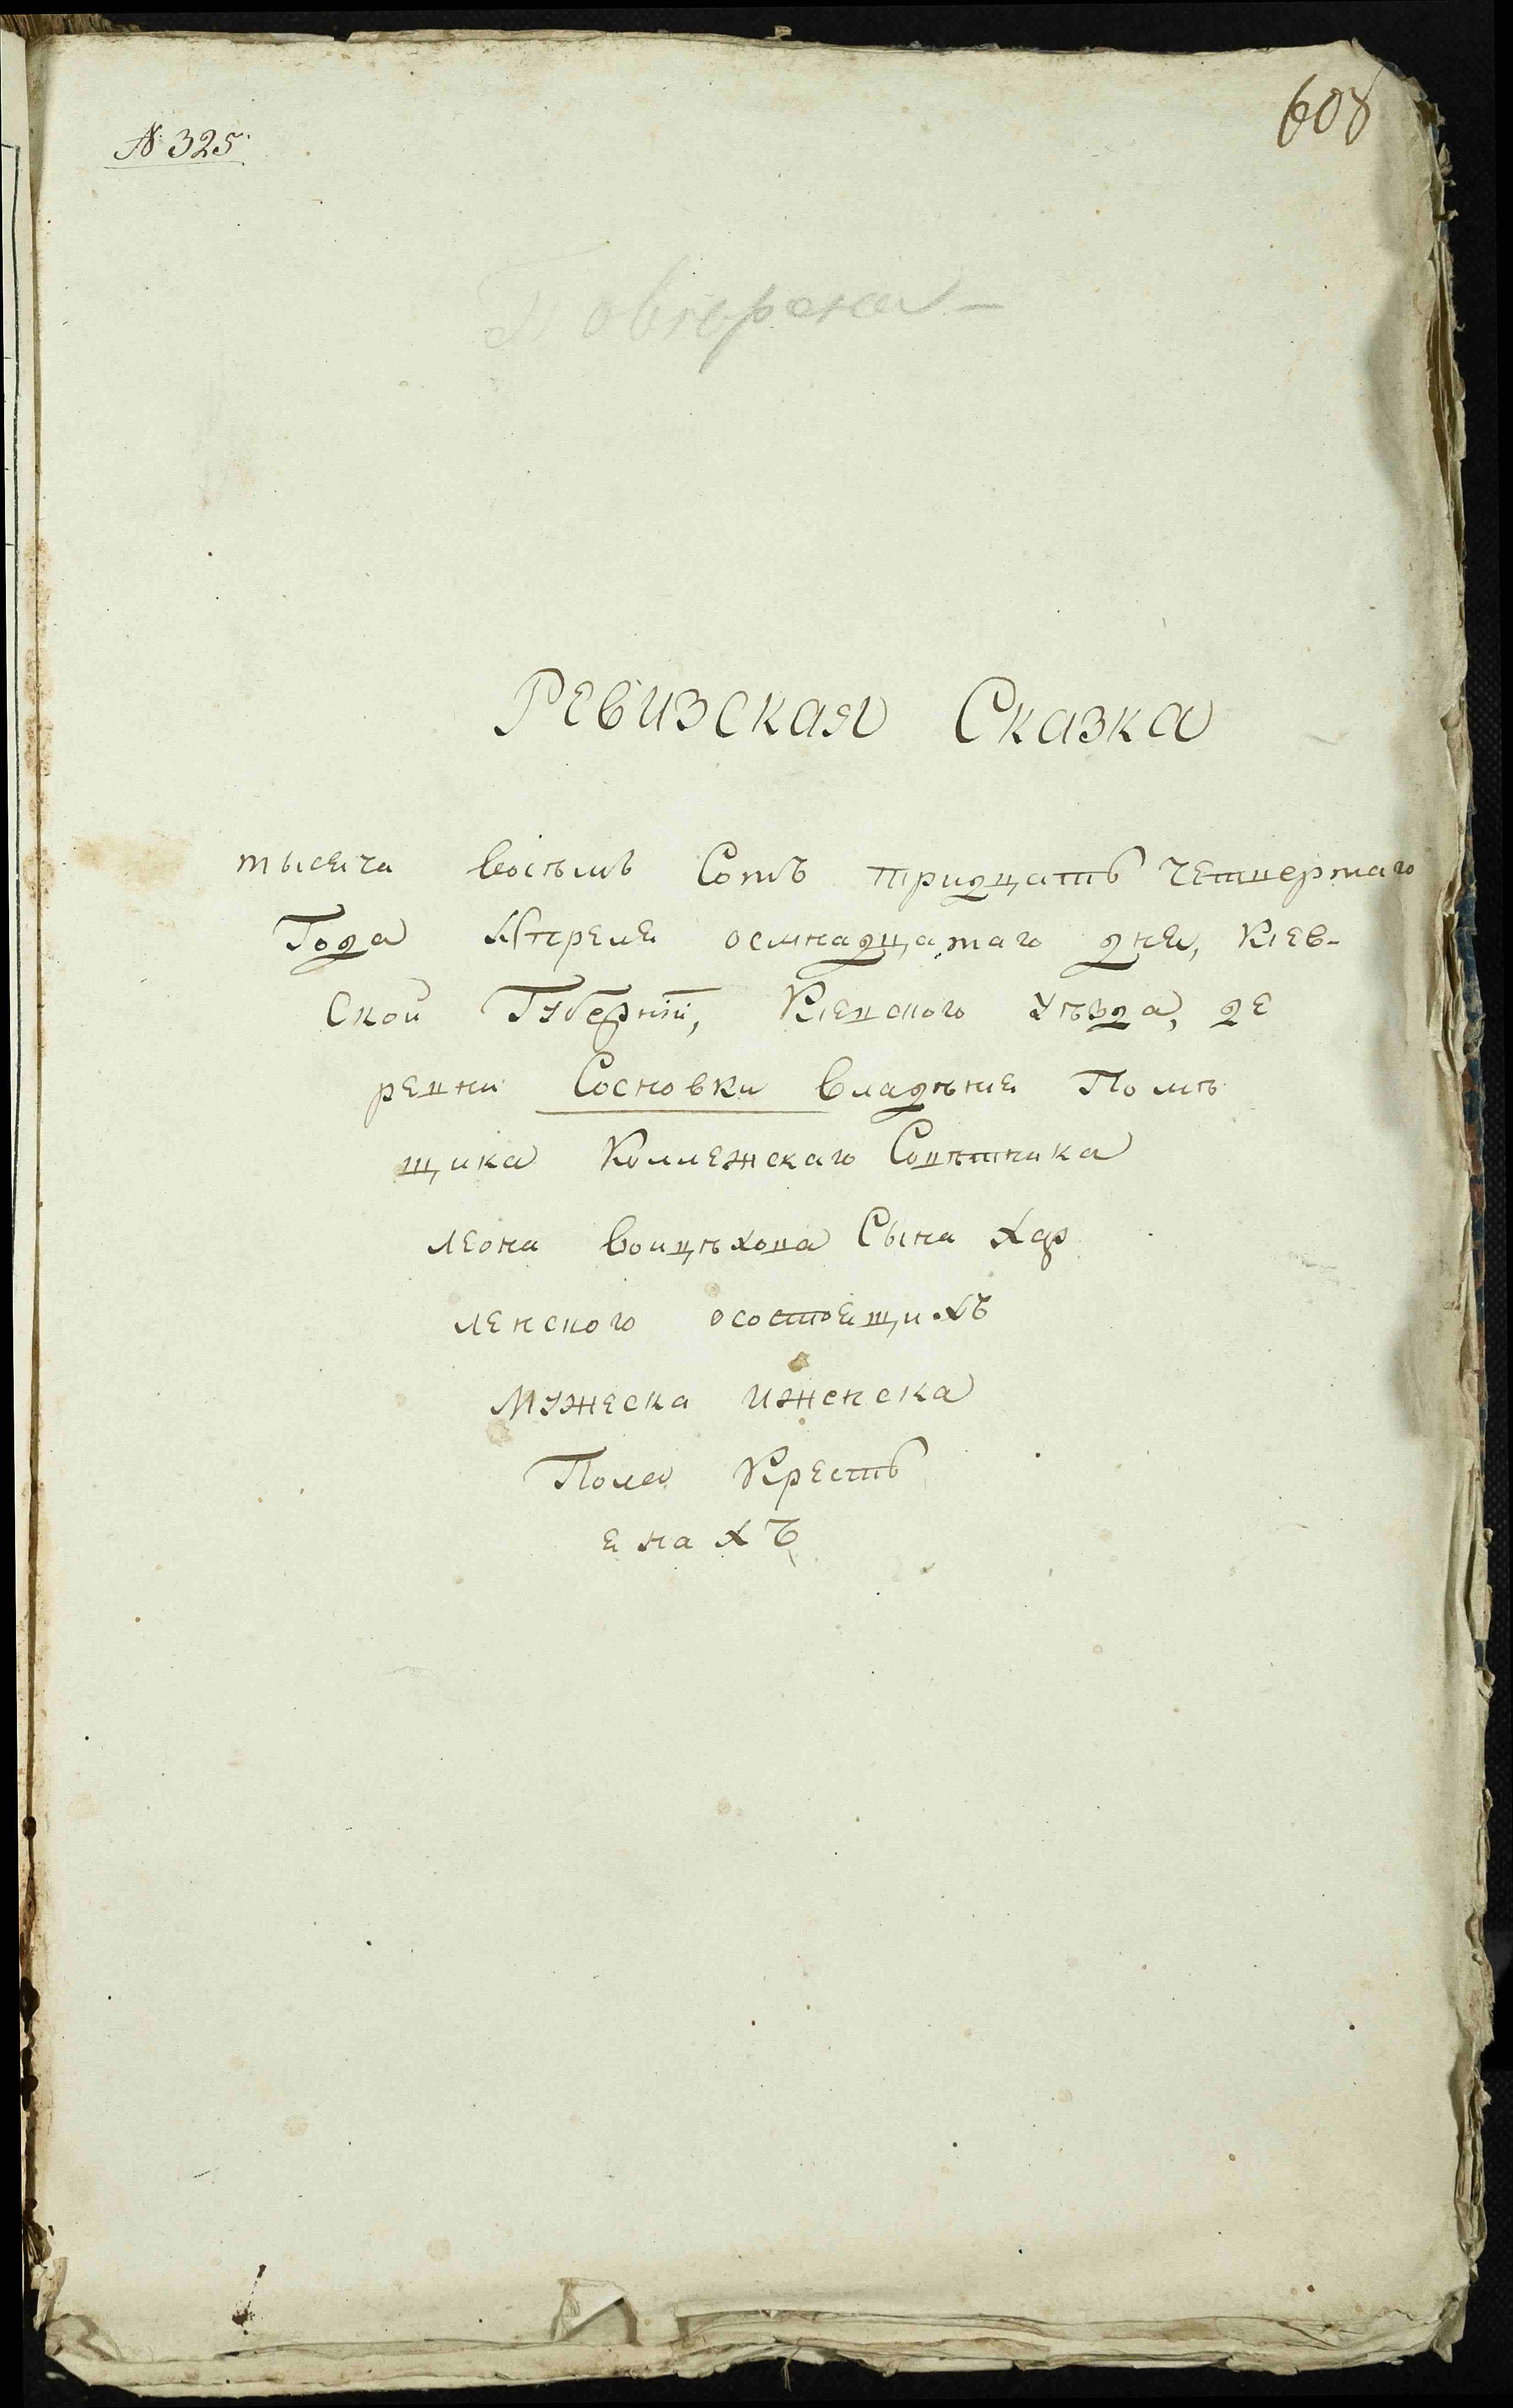 № 325
608
Повѣрена
Ревизская Сказка
тысеча восѣмь Сотъ тридцать четвертаго
Года Апреле осмнадцатаго дня, Кіев-
Ской Губерніи, Кіевского Уѣзда, де
ревни Сосновки владѣние Помѣ
щика Коллежскаго Совѣтника
леона воицѣхова Сына Хар
ленского осостоещихъ
Мужеска иженска
Пола Кресть
енахъ